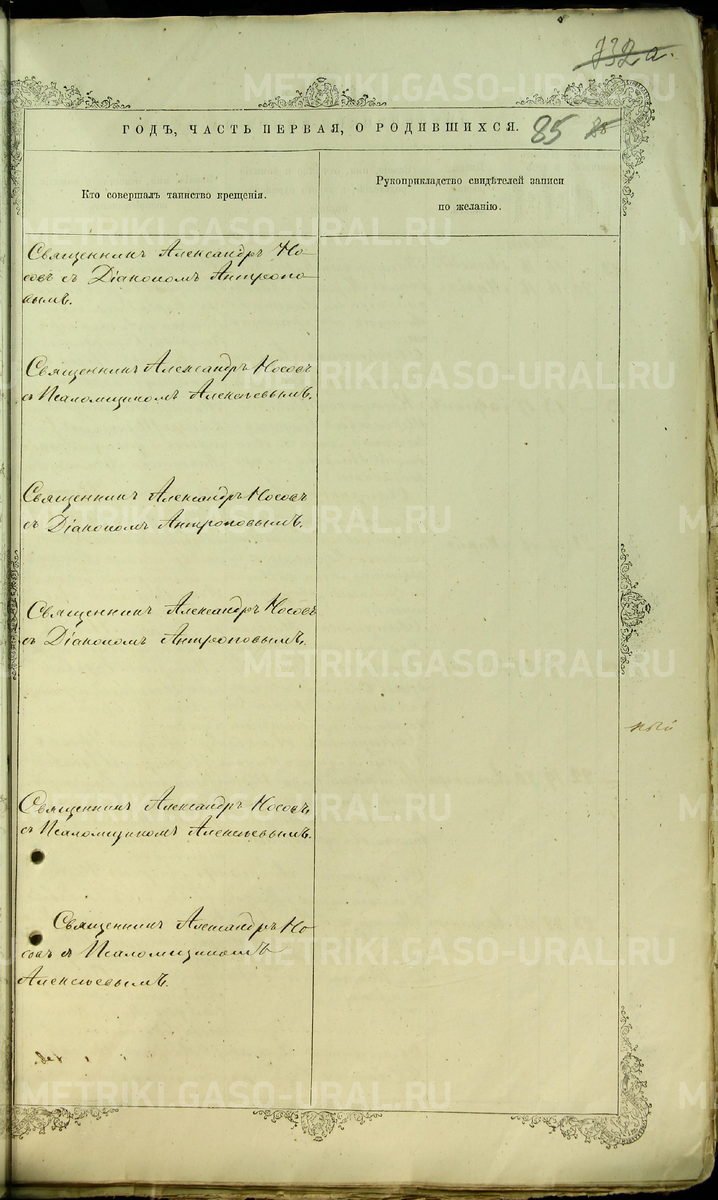 732а.
ГОДЪ, ЧАСТЬ ПЕРВАЯ, О РОДИВШИХСЯ.
85
Кто совершалъ таинство крещенія.
Рукоприкладство свидѣтелей записи
по желанію.
Священникъ Александръ Но-
совъ съ Діакономъ Антропо-
вымъ.
Священникъ Александръ Носовъ
съ Псаломщикомъ Алексѣевымъ.
Священникъ Александръ Носовъ
съ Діакономъ Антроповымъ.
Священникъ Александръ Носовъ
съ Діакономъ Антроповымъ.
Священникъ Александръ Носовъ
съ Псаломщикомъ Алексѣевымъ.
Священникъ Александръ Но-
совъ съ Псаломщикомъ
Алексѣевымъ.
METRIKI.GASO-URAL.RU